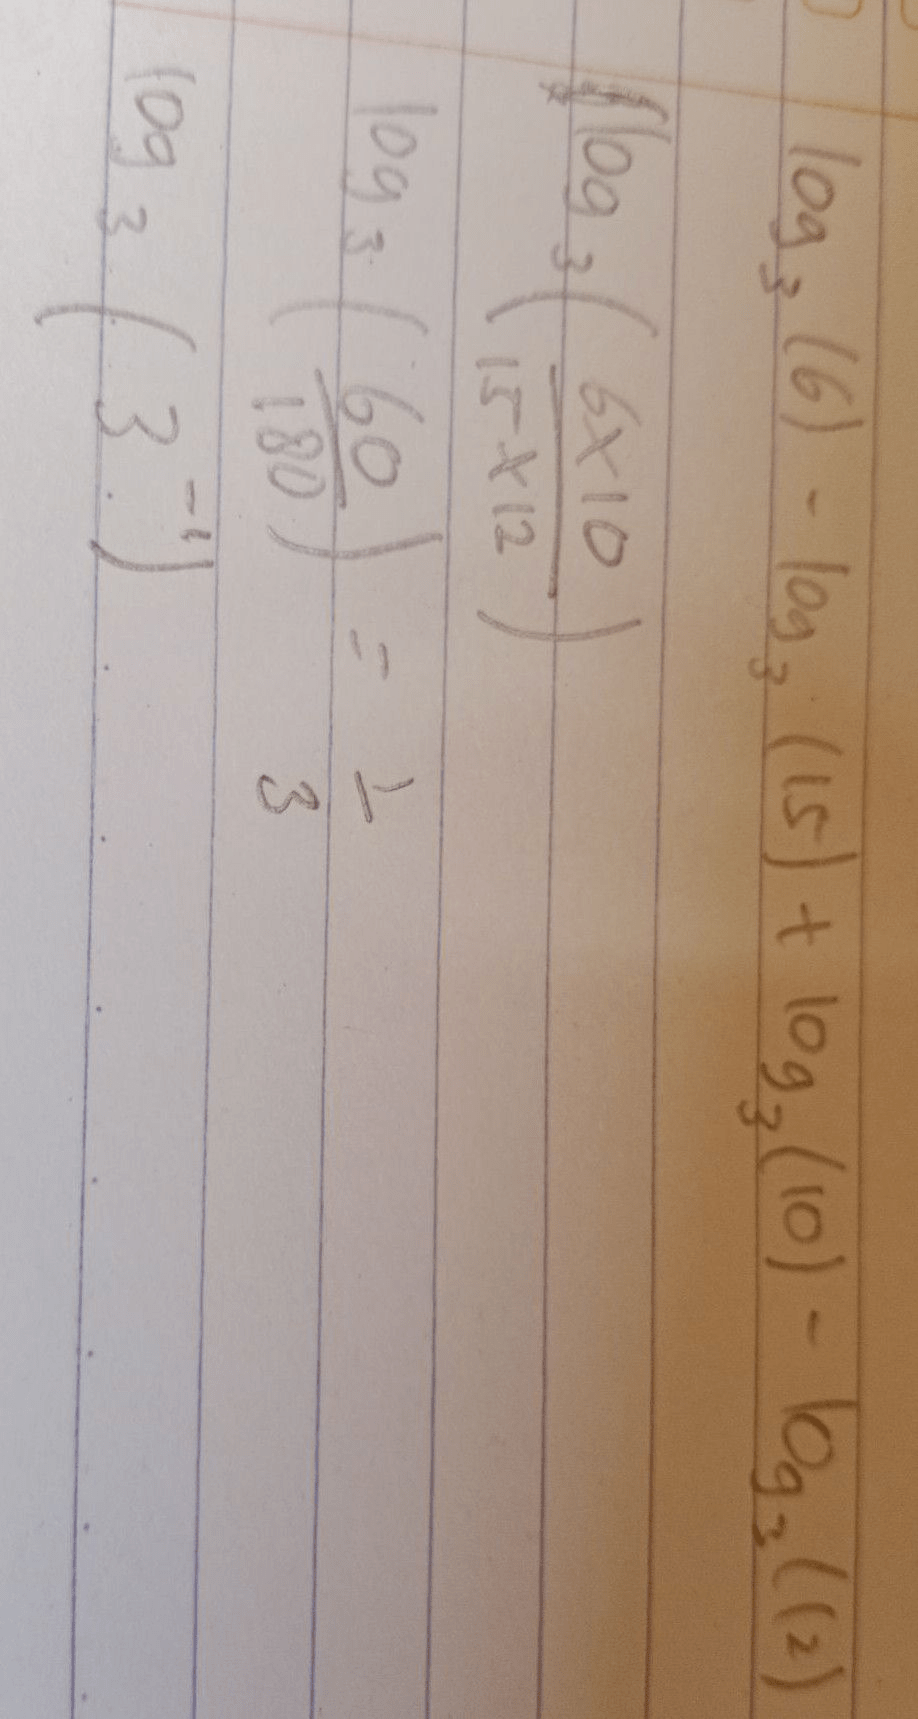 log₃(6) - log₃(15) + log₃(10) - log₃(12)
log₃(6×10/15×12)
log₃(60/180) = 1/3
log₃(3⁻¹)